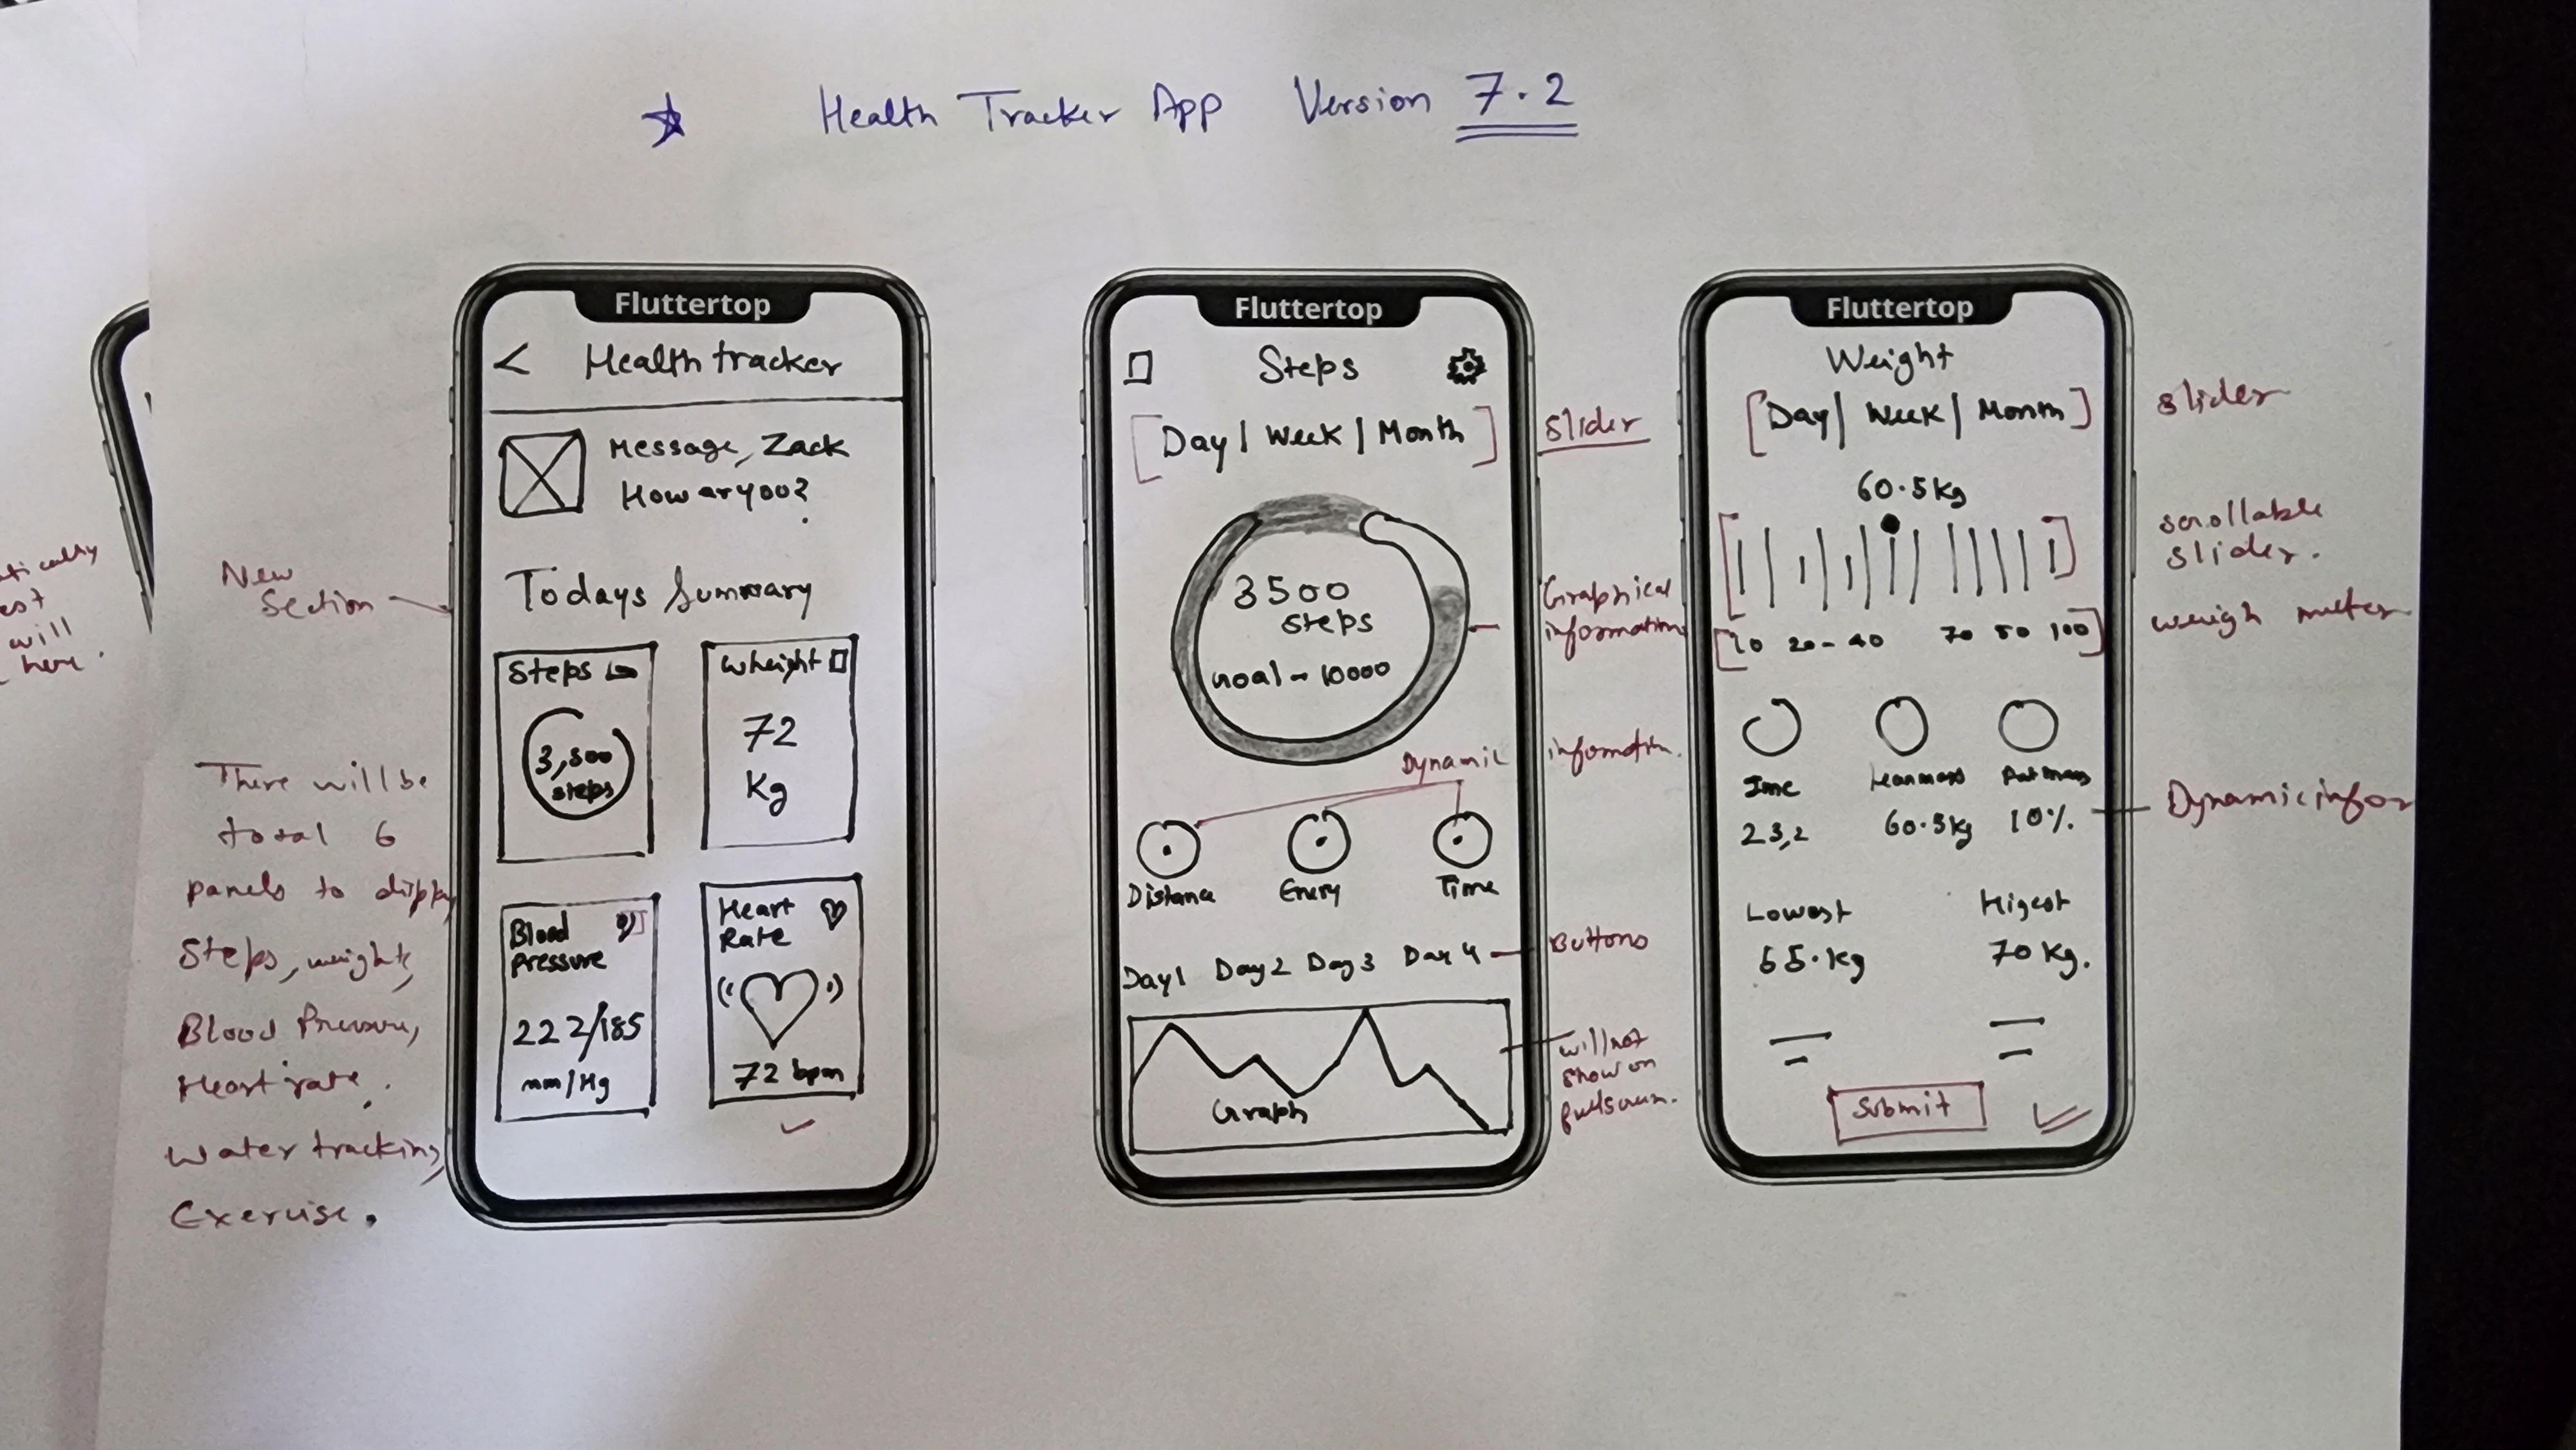 Health Tracker App Version 7.2
atically
est
will
here.
New
Section
There will be
total 6
panels to disply
Steps, weight,
Blood Pressure,
Heart rate,
Water tracking,
Exercise.
Fluttertop
< Health tracker
Message, Zack
How ar yoo?
Todays Summary
Steps
3,500
steps
Wheight
72
Kg
Blood
Pressure
222/185
mm/Hg
Heart
Rate
72 bpm
Fluttertop
Steps
[Day | Week | Month]
slider
3500
steps
Goal - 10000
Graphical
information
Dynamic infomatin.
Distance
Enery
Time
Day1 Day2 Day3 Day 4
Buttons
Graph
will not
show on
Fluttertop
Weight
[Day | Week | Month]
slider
60.5 Kg
scrollable
slider.
10 20 - 40 70 80 100
weigh meter
Leanmass
23,2
60.5kg
10%.
Dynamic infor
Lowest
Higest
70 Kg.
Submit